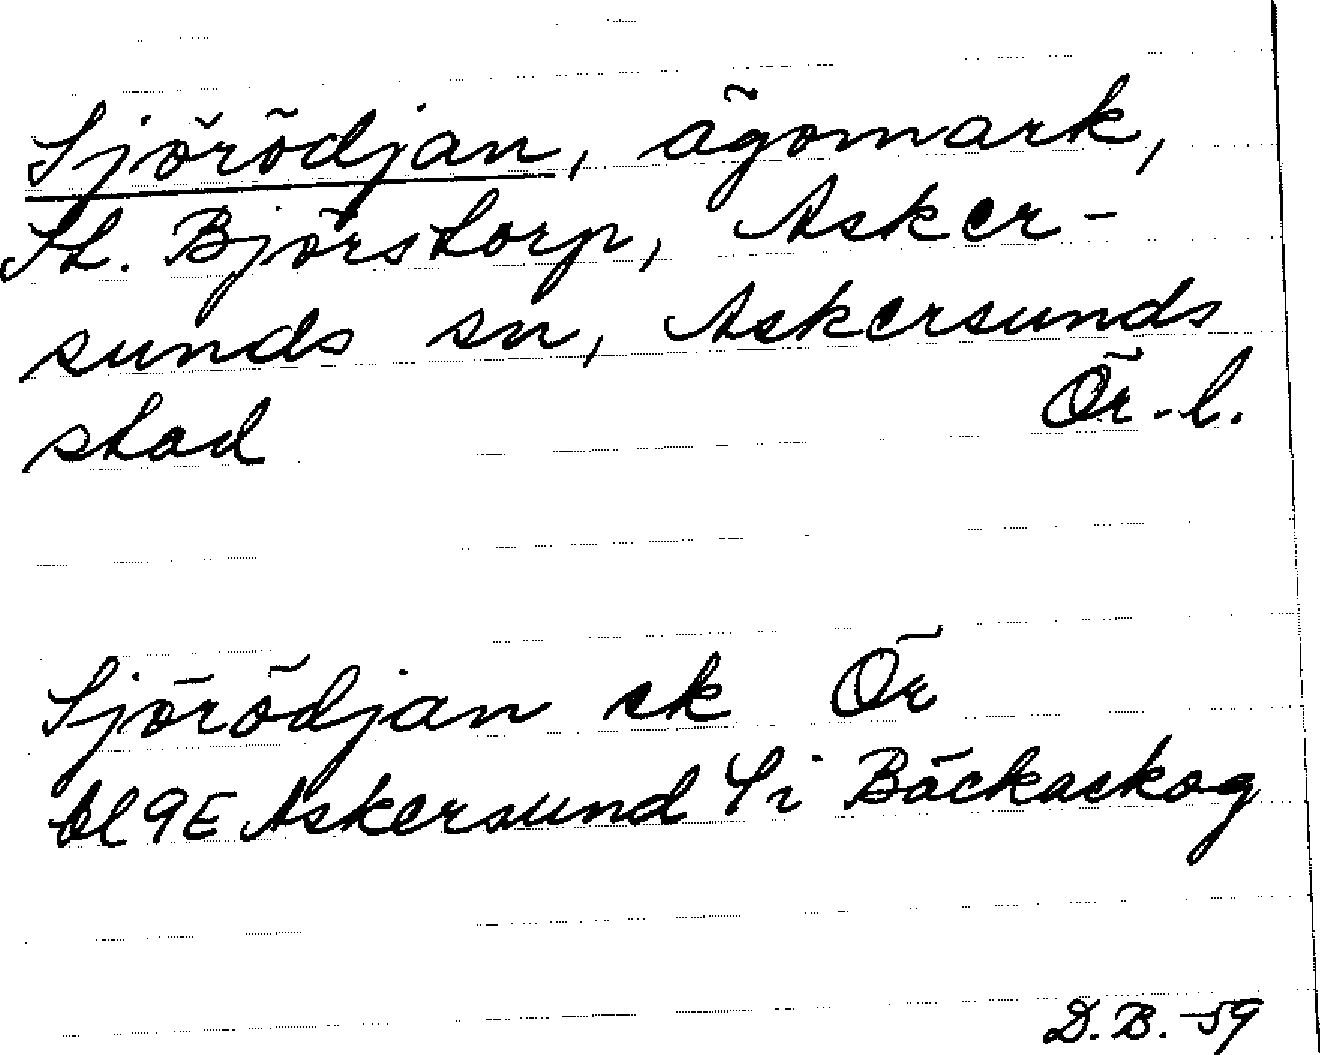 Sjörödjan, ägomark,
St. Björstorp, Asker-
sunds sn, Askersunds
stad Ör. l.
Sjörödjan ek Ör
bl 9E Askersund Si Bäckaskog
D.B. -59